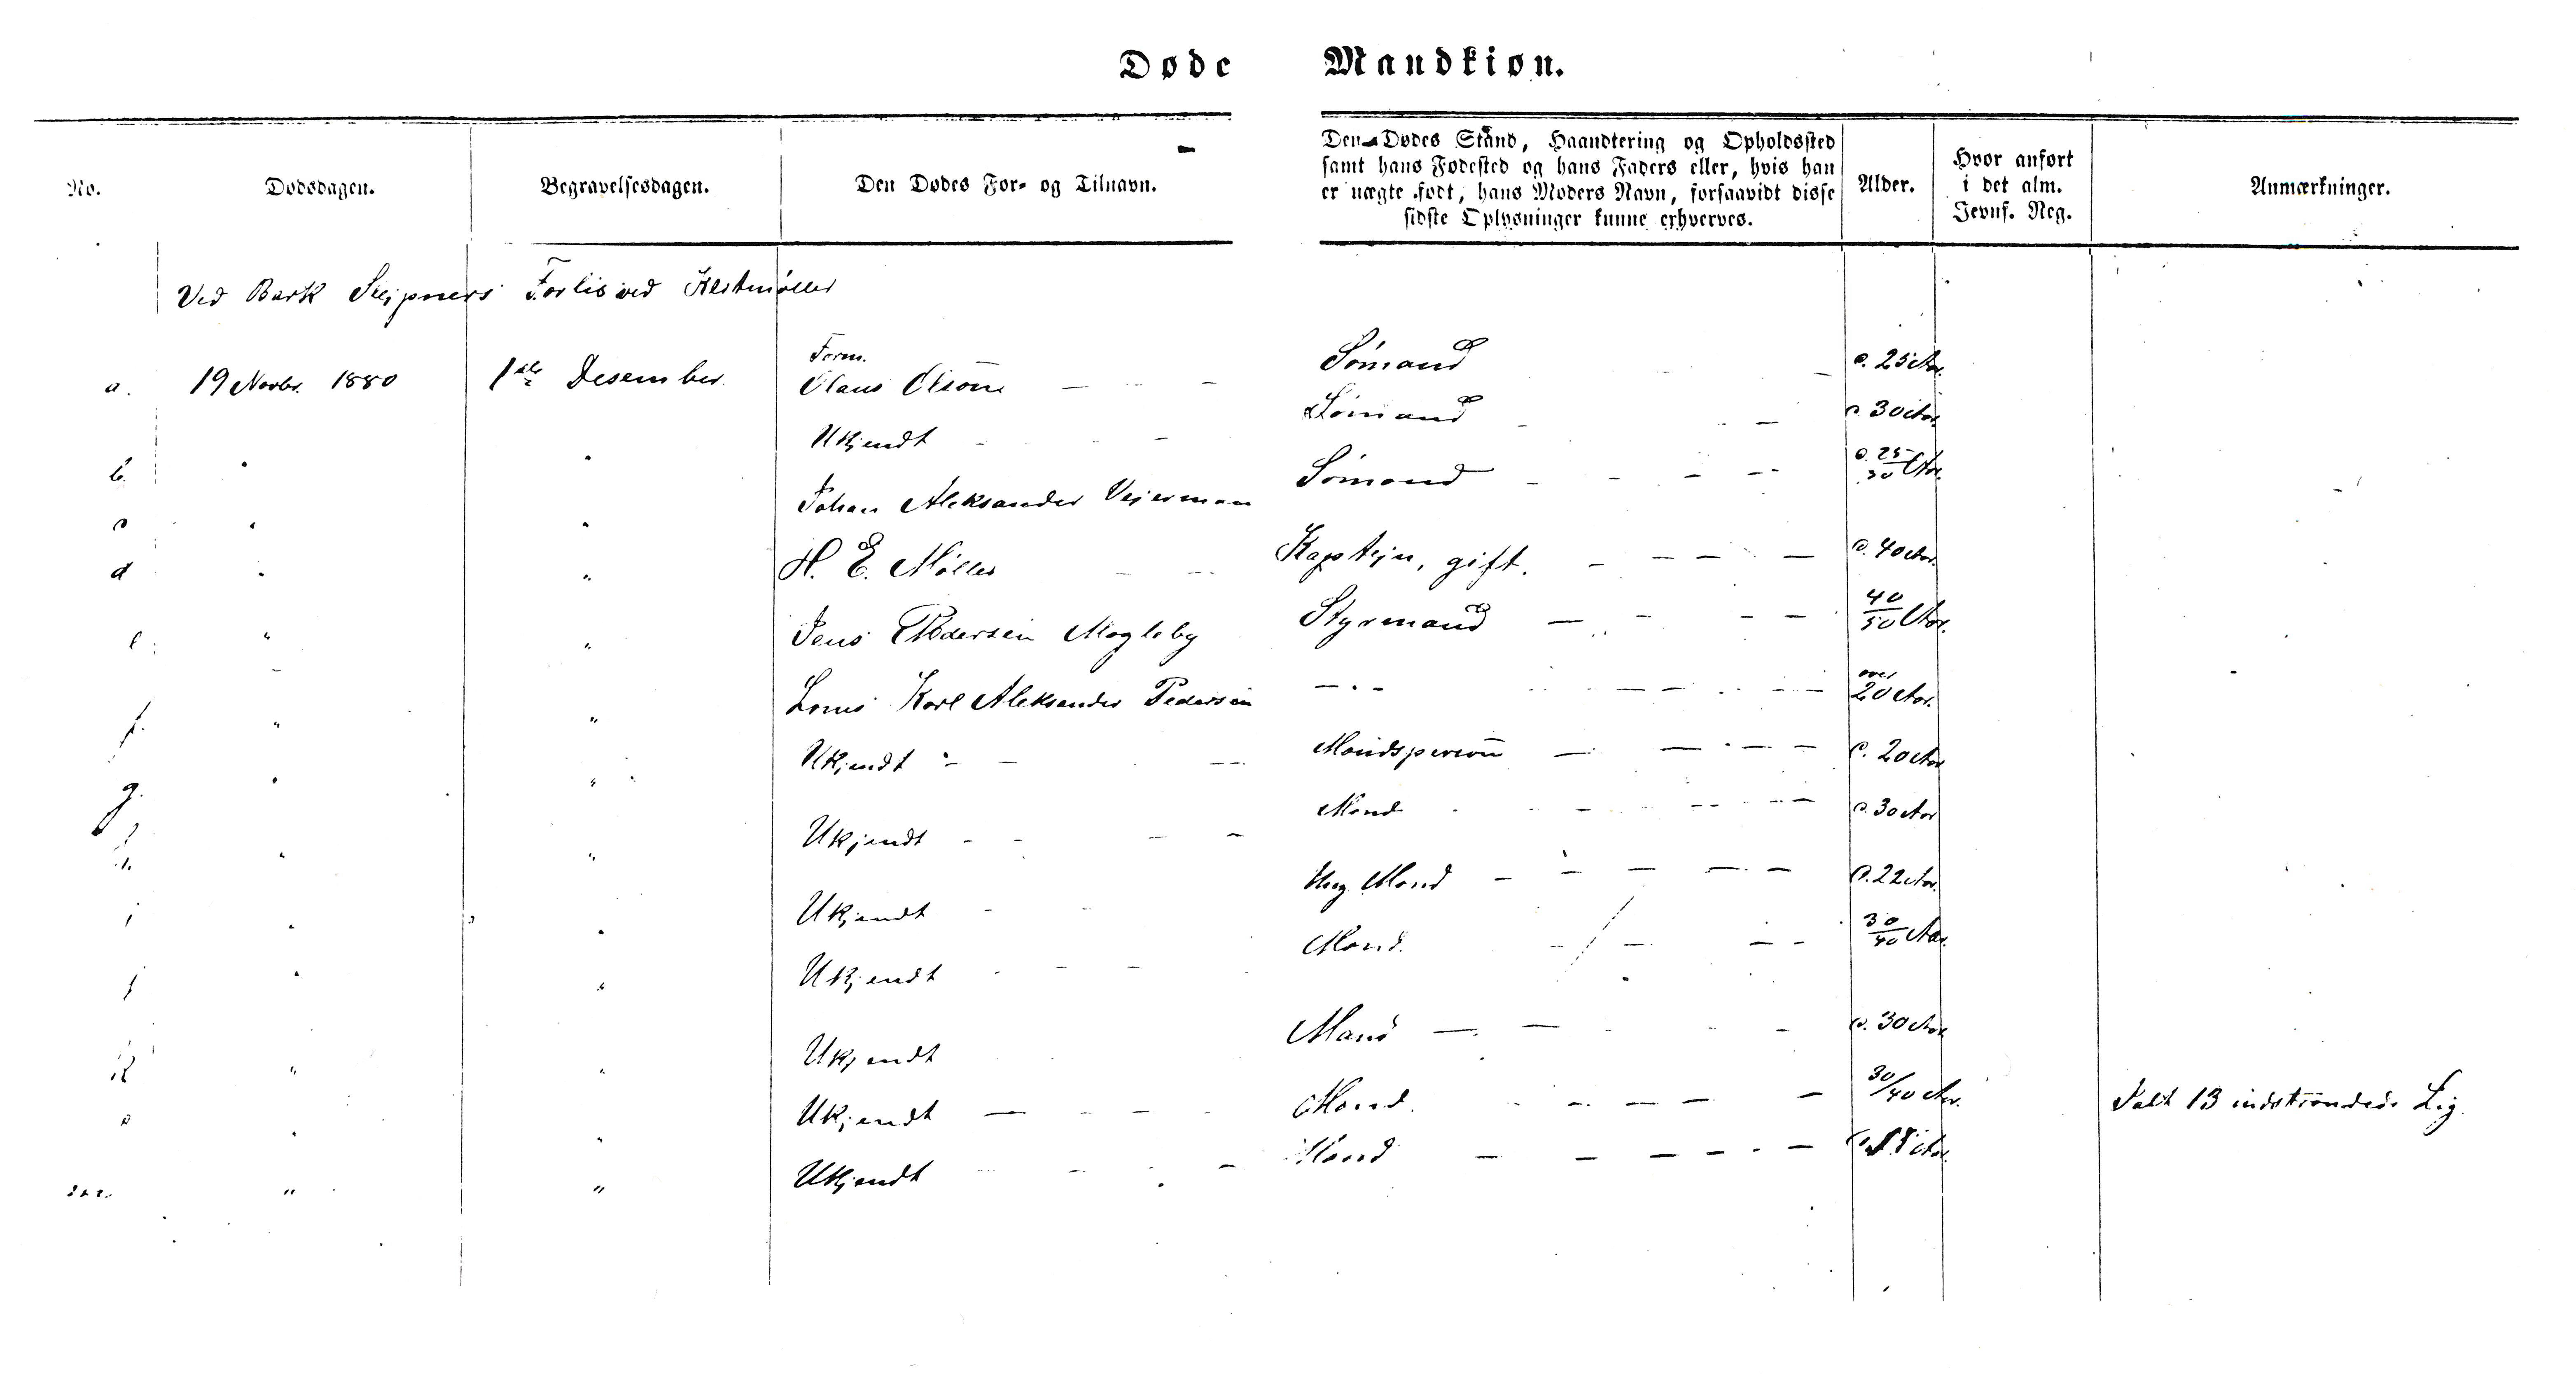 Døde Mandkiøn.
No. Dødsdagen. Begravelsesdagen. Den Dødes For- og Tilnavn. Den Dødes Stand, Haandtering og Opholdssted samt hans Fødested og hans Faders eller, hvis han er uægte født, hans Moders Navn, forsaavidt disse sidste Oplysninger kunne erhverves. Alder. Hvor anført i det alm. Jevnf. Reg. Anmærkninger.
Ved Bark Slejpners Forlis ved Klitmøller
Form.
a. 19 Novbr. 1880 1ste Desember. Olaus Olson Sømand c. 25 Aar.
b. " " Ukjendt Sømand c. 30 Aar.
c " " Johan Aleksander Vejerman Sømand c. 25/30 Aar.
d " " H. E. Møller Kaptejn, gift. c. 40 Aar.
e " " Jens Pedersen Magleby Styrmand 40/50 Aar.
f. " " Louis Karl Aleksander Pedersen over 20 Aar.
g. " " Ukjendt Mandsperson c. 20 Aar
h. " " Ukjendt Mand c. 30 Aar
i " " Ukjendt Ung Mand c. 22 Aar.
j " " Ukjendt Mand. 30/40 Aar.
k " " Ukjendt Mand c. 30 Aar
" " Ukjendt Mand. 30/40 Aar. Ialt 13 indstrandede Lig.
" " Ukjendt Mand Aar.